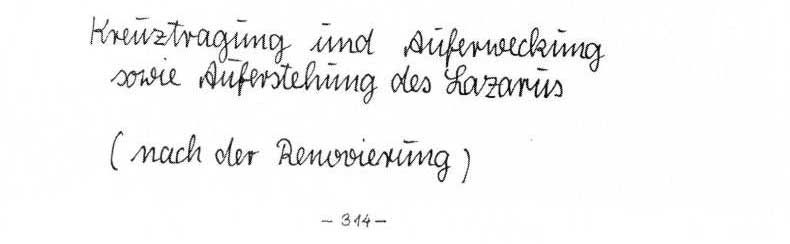 Kreuztragung und Auferweckung
sowie Auferstehung des Lazarus
( nach der Renovierung )
- 314 -